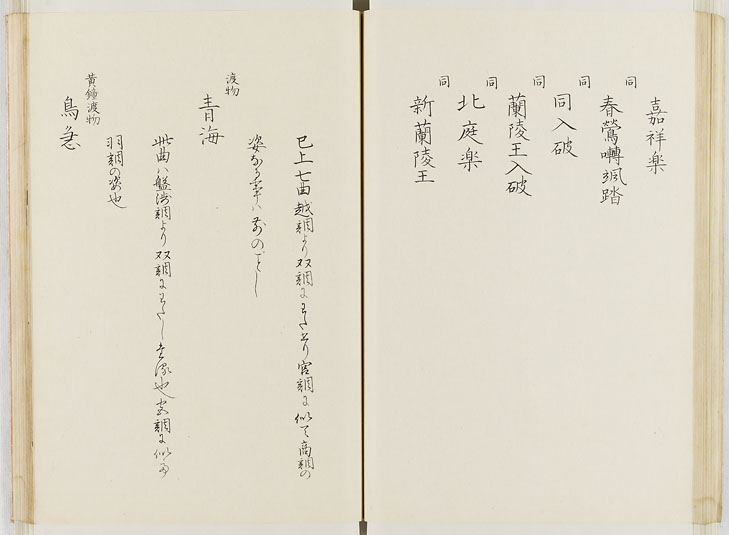 嘉祥楽
同
春鶯囀颯踏
同
同入破
同
蘭陵王入破
同
北庭楽
同
新蘭陵王
已上七曲越調より双調にわたせり宮調に似て商調の
姿なる事は前のごとし
渡物
青海
此曲ハ盤渉調より双調にわたし
調に似
羽調の姿也
黄鐘渡物
鳥急